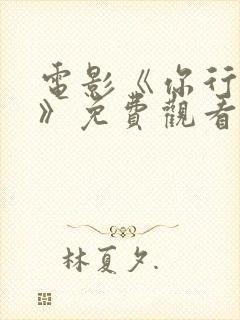 電影《你行
》免費觀看
林夏夕.